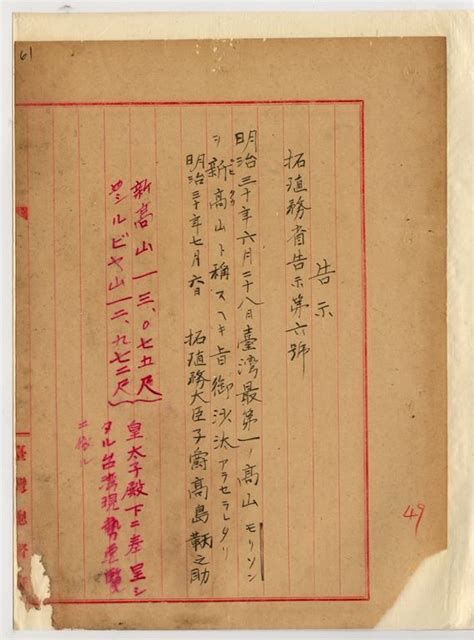 61
告示
拓殖務省告示第六號
明治三十年六月二十八日臺灣最第一ノ高山モリソン
ヲ新高山ト稱スヘキ旨御沙汰アラセラレタリ
明治三十年七月六日 拓殖務大臣子爵高島鞆之助
新高山一三、〇七五尺
シルビヤ山一二、九七二尺
皇太子殿下ニ差呈シ
タル台湾現勢要覽
ニ依ル
49